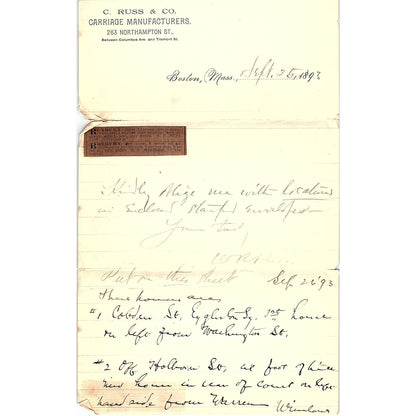 C. RUSS & CO.
CARRIAGE MANUFACTURERS.
263 NORTHAMPTON ST.,
Between Columbus Ave. and Tremont St.
Boston, Mass., Sept. 25, 1893
Kindly oblige me with locations
in Enclosed Stamped Envelope
Yours truly,
Put on this sheet Sep. 26 '93
These houses are
#1 Cobden St, 1st house
on left from Washington St.
#2 Off Holborn St, at foot of
new house in rear of court on left
hand side from Warren